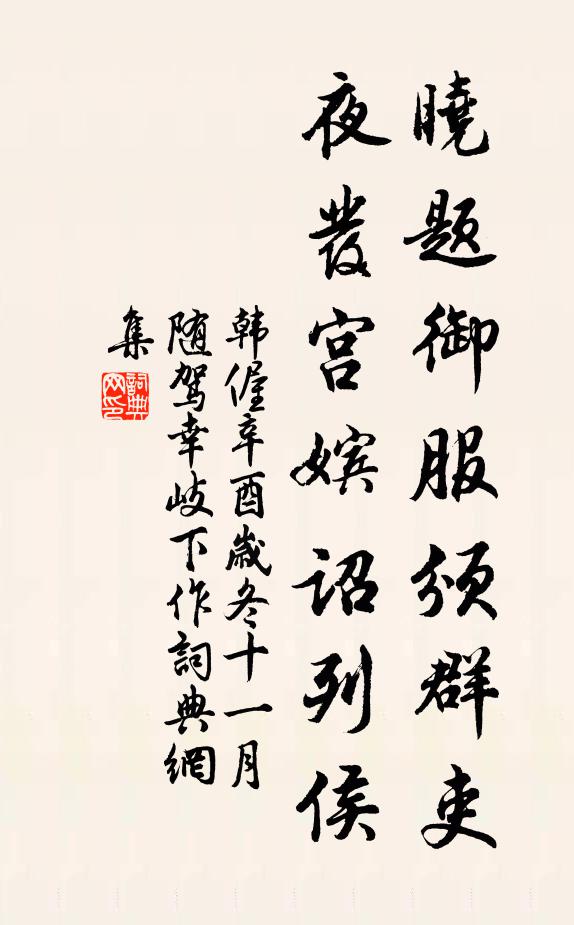 曉題御服頒群吏
夜發宮嬪詔列侯
韓偓辛酉歲冬十一月
随駕幸岐下作詞典網
集
詞典
网印